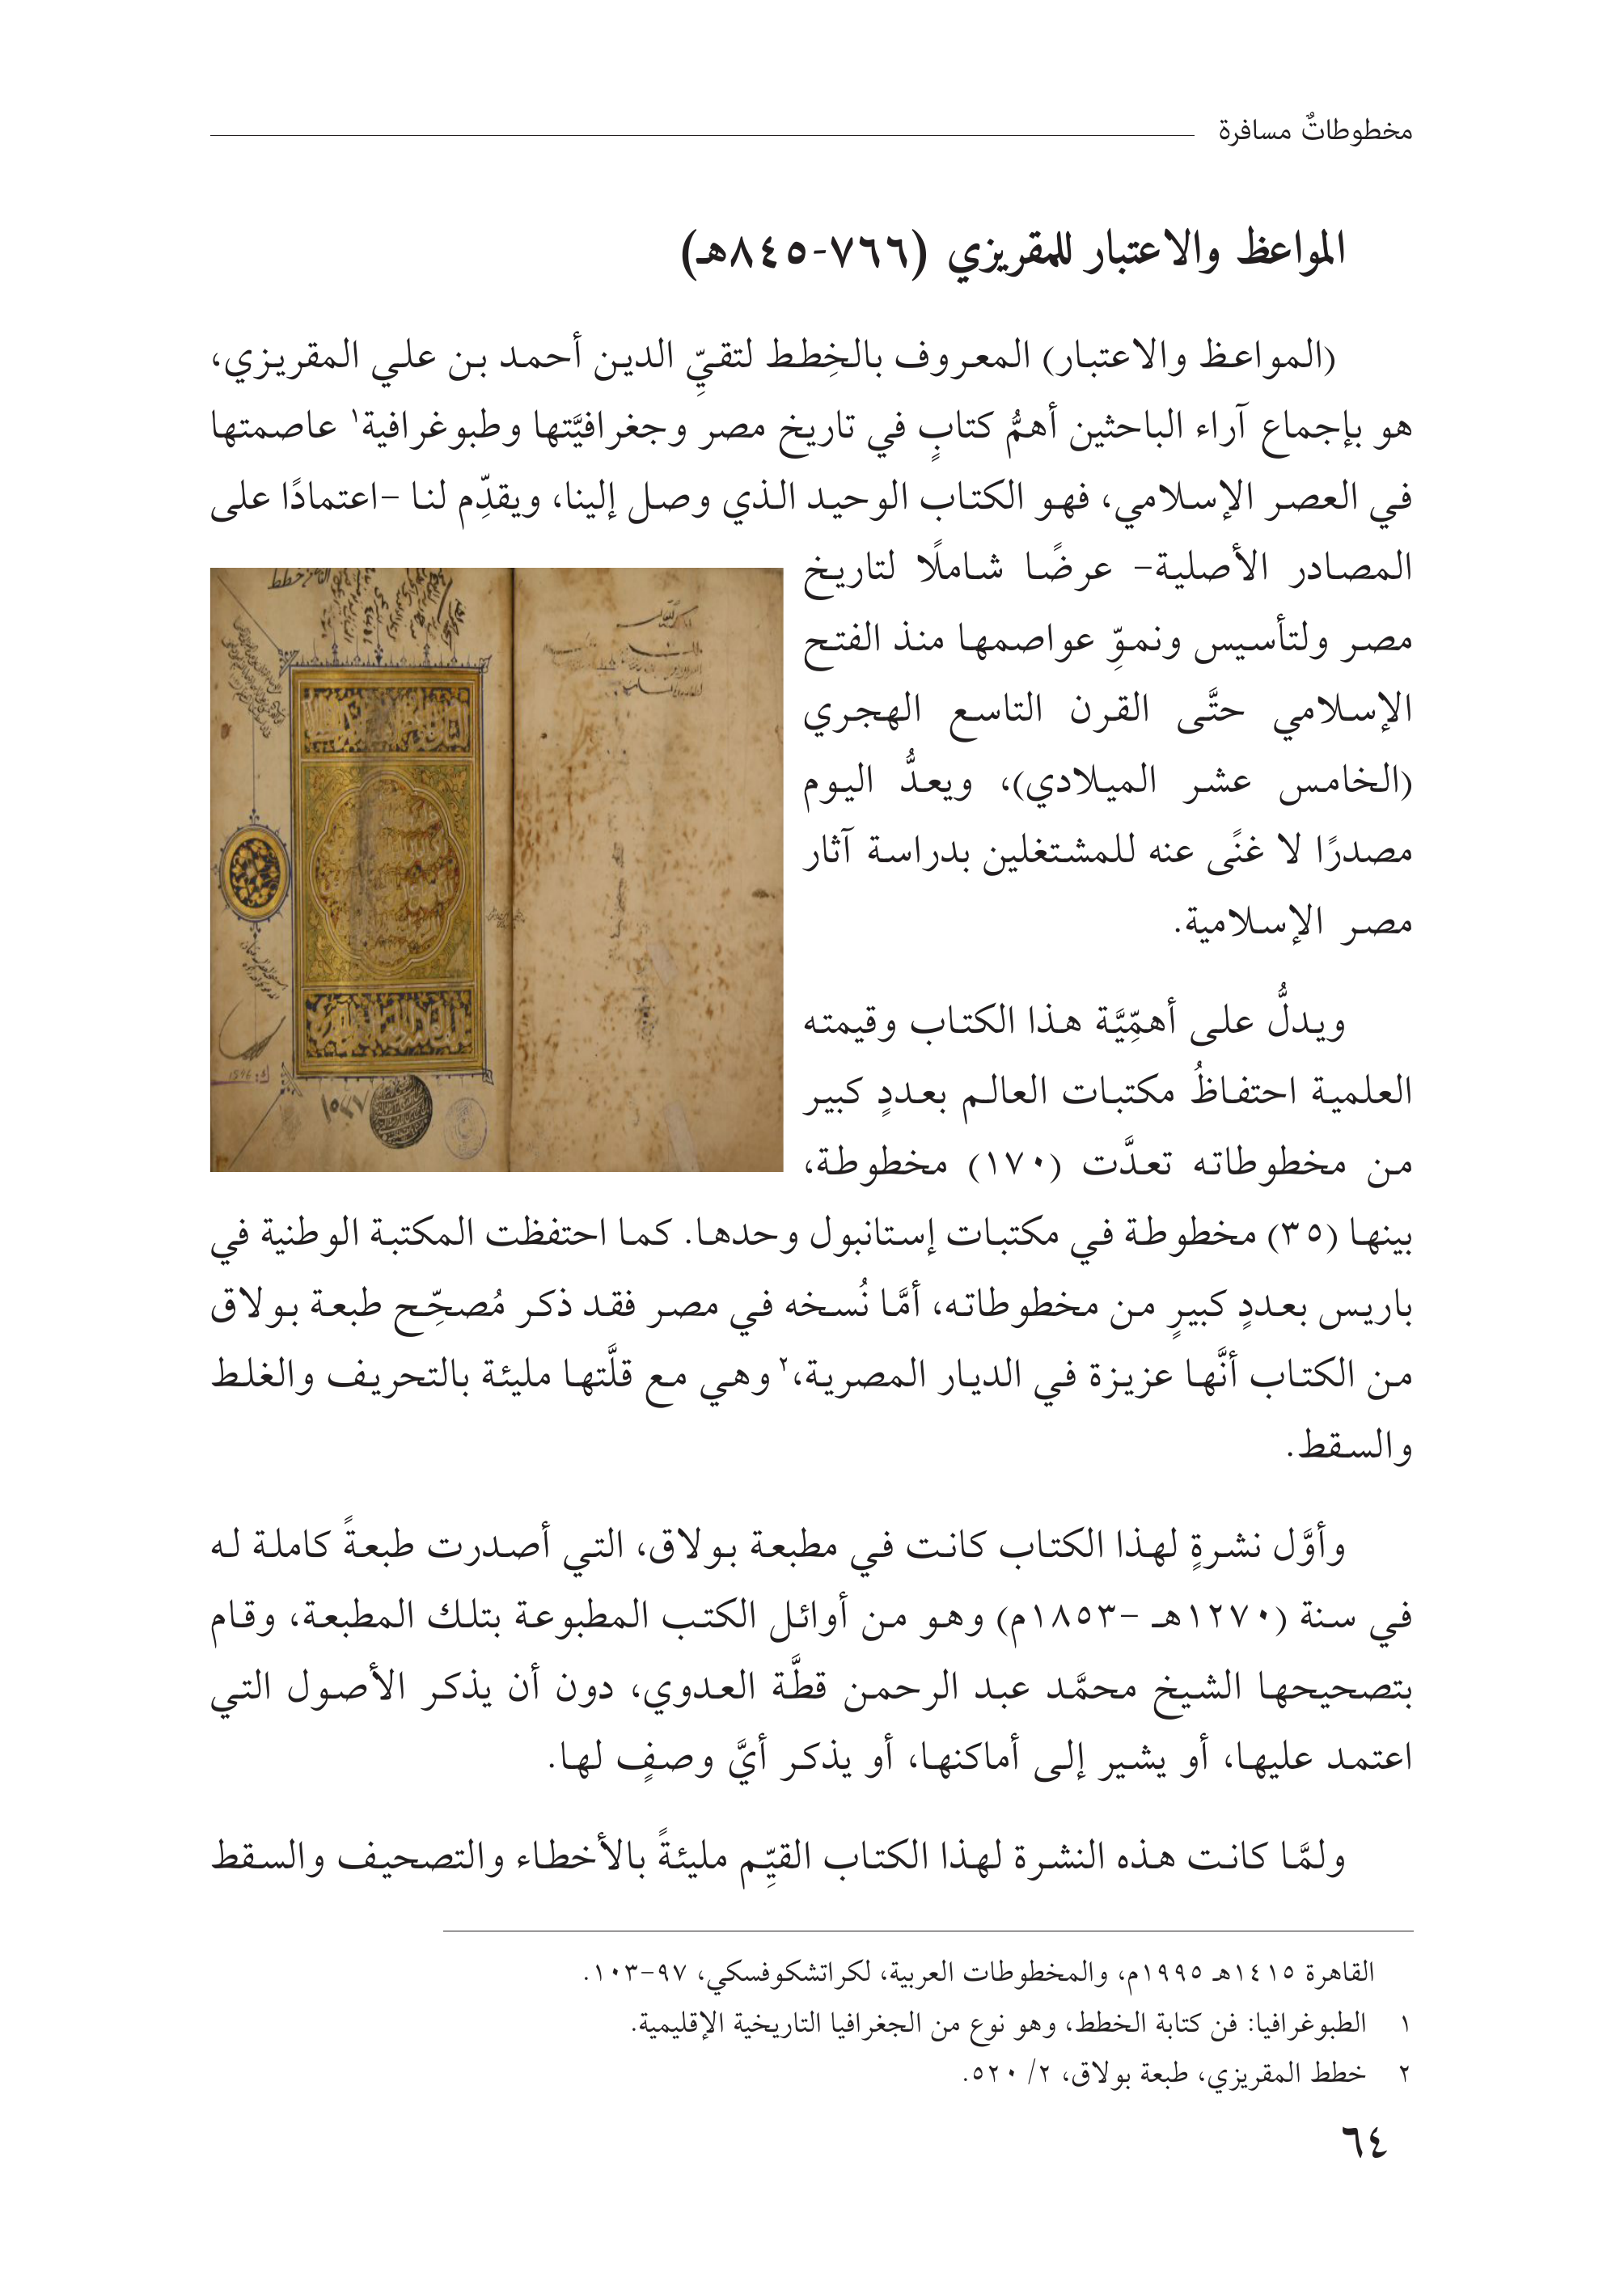 مخطوطاتٌ مسافرة
المواعظ والاعتبار للمقريزي (٧٦٦-٨٤٥هـ)
(المواعظ والاعتبار) المعروف بالخِطط لتقيِّ الدين أحمد بن علي المقريزي،
هو بإجماع آراء الباحثين أهمُّ كتابٍ في تاريخ مصر وجغرافيَّتها وطبوغرافية١ عاصمتها
في العصر الإسلامي، فهو الكتاب الوحيد الذي وصل إلينا، ويقدِّم لنا -اعتمادًا على
المصادر الأصلية- عرضًا شاملًا لتاريخ
مصر ولتأسيس ونموِّ عواصمها منذ الفتح
الإسلامي حتَّى القرن التاسع الهجري
(الخامس عشر الميلادي)، ويعدُّ اليوم
مصدرًا لا غنًى عنه للمشتغلين بدراسة آثار
مصر الإسلامية.
ويدلُّ على أهمِّيَّة هذا الكتاب وقيمته
العلمية احتفاظُ مكتبات العالم بعددٍ كبير
من مخطوطاته تعدَّت (١٧٠) مخطوطة،
بينها (٣٥) مخطوطة في مكتبات إستانبول وحدها. كما احتفظت المكتبة الوطنية في
باريس بعددٍ كبيرٍ من مخطوطاته، أمَّا نُسخه في مصر فقد ذكر مُصحِّح طبعة بولاق
من الكتاب أنَّها عزيزة في الديار المصرية،٢ وهي مع قلَّتها مليئة بالتحريف والغلط
والسقط.
وأوَّل نشرةٍ لهذا الكتاب كانت في مطبعة بولاق، التي أصدرت طبعةً كاملة له
في سنة (١٢٧٠هـ -١٨٥٣م) وهو من أوائل الكتب المطبوعة بتلك المطبعة، وقام
بتصحيحها الشيخ محمَّد عبد الرحمن قطَّة العدوي، دون أن يذكر الأصول التي
اعتمد عليها، أو يشير إلى أماكنها، أو يذكر أيَّ وصفٍ لها.
ولمَّا كانت هذه النشرة لهذا الكتاب القيِّم مليئةً بالأخطاء والتصحيف والسقط
القاهرة ١٤١٥هـ ١٩٩٥م، والمخطوطات العربية، لكراتشكوفسكي، ٩٧-١٠٣.
١ الطبوغرافيا: فن كتابة الخطط، وهو نوع من الجغرافيا التاريخية الإقليمية.
٢ خطط المقريزي، طبعة بولاق، ٢/ ٥٢٠.
٦٤